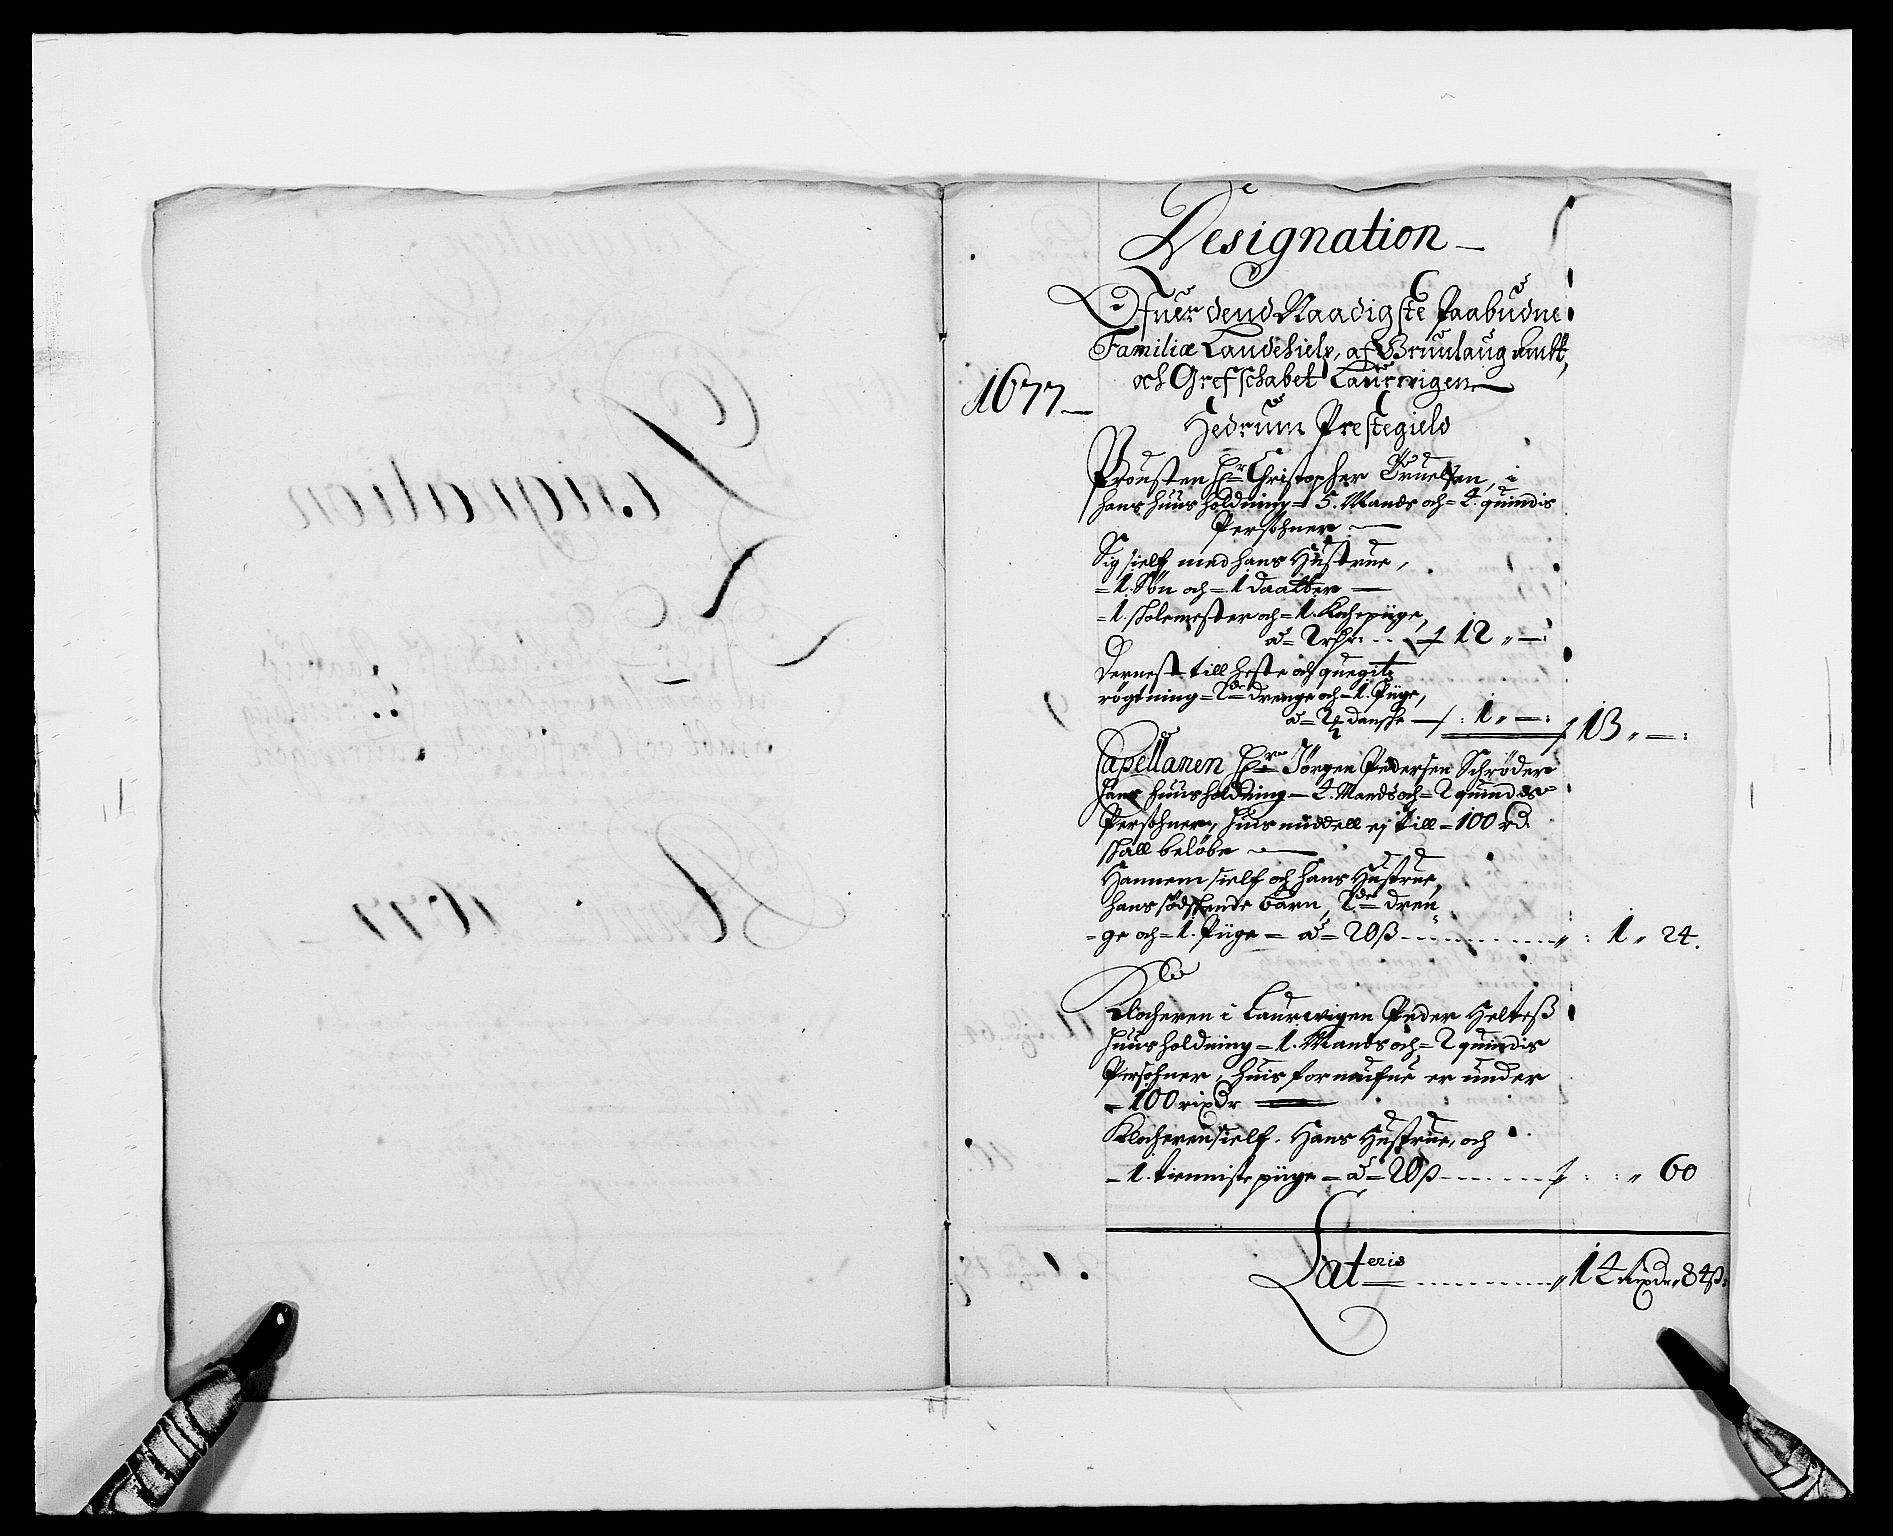 Designation
Ofuer dend Naadigste Paabudne
Familiæ Landehielp, af Brunlaug Ambt,
och Grefschabet Laurwigen
1677
Hedrum Prestegield
Prousten Hr Christopher Truelsen, i
hans huus holdning = 5. Mands och = 4. quindis
Persohner
Sig sielf med hans Hustrue,
= 1. Søn och = 1 daatter
= 1. skolemester och = 1. Kochepiige,
a = 2 rdr: 12 " — :
Dernest till heste och quegits
røgtning = 2de drenge och = 1. Piige,
a = 2 ₰ danske : 1 " — : 13 " — :
Capellanen Hr Jørgen Pedersen Schrøder
hans huusholdning = 4. Mands och = 2 quindes
Persohner, huis middell ej till = 100 rd.
skall beløbe
Hannem sielf och hans Hustrue,
hans södskende barn, 2de dren
= ge och = 1. Piige = a = 20 ß : 1 " 24.
Klocheren i Laurwigen Peder Helteß
huus holdning = 1. Mands och = 2 quindis
Persohner, huis formufue er under
= 100 rixdr
Klocheren sielf. Hans Hustrue, och
= 1. tienniste piige = a = 20 ß : : " 60
Lateris 14 Rixdr " 84 ß: